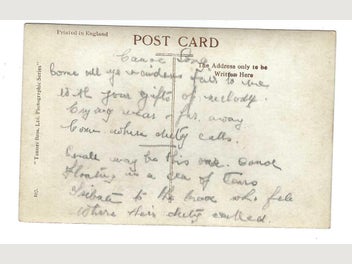 Printed in England
POST CARD
The Address only to be
Written Here
"Tanner Bros. Ltd. Photographic Series"
Canoe Song
Come all ye maidens fair to me
with your gifts of melody
far away
Come where duty calls.
Small may be this one canoe
Floating in a sea of
Tribute to the brave who fell
Where their duty called.